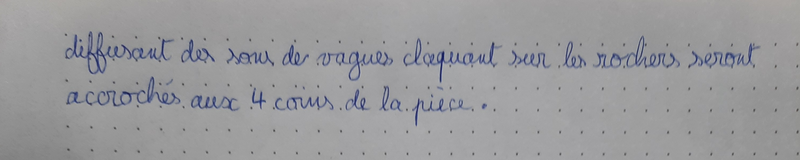 diffusant des sons de vagues claquant sur les rochers seront
accrochés aux 4 coins de la pièce.